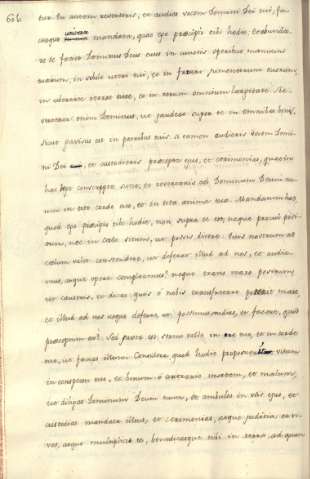 606.
tu autem reverteris, et audies vocem Domini Dei tui, fa
ciesque universa mandata, quae ego praecipio tibi hodie, et abunda
re te faciet Dominus Deus tuus in cunctis operibus manuum
tuarum, in sobole uteri tui, et in fructu jumentorum tuorum,
in ubertate terrae tuae, et in rerum omnium largitate. Re
vertetur enim Dominus, ut gaudeat super te in omnibus bonis,
sicut gavisus est in patribus tuis. si tamen audieris vocem Domi
ni Dei tui, et custodieris praecepta ejus, et ceremonias, quae in
hac lege conscripta sunt, et revertaris ad Dominum Deum tu
um in toto corde tuo, et in tota anima tua. Mandatum hoc,
quod ego praecipio tibi hodie, non supra te est, neque procul posi
tum, nec in coelo situm, ut possis dicere. Quis nostrum ad
coelum valet conscendere, ut deferat illud ad nos, et audia
mus, atque opere compleamus? neque trans mare positum,
ut causeris, et dicas, quis e nobis transfretare poterit mare,
et illud ad nos usque deferre, ut possimus audire, et facere, quod
praeceptum est? Sed juxta te, sermo valde in ore tuo, et in corde
tuo, ut facias illum. Considera quod hodie proposuerim vitam
in conspectu tuo, et bonum, e contrario mortem, et malum,
ut diligas Dominum Deum tuum, et ambules in viis ejus, et
custodias mandata illius, et ceremonias, atque judicia et vi
vas, atque multiplicet te, benedicatque tibi in terra, ad quam